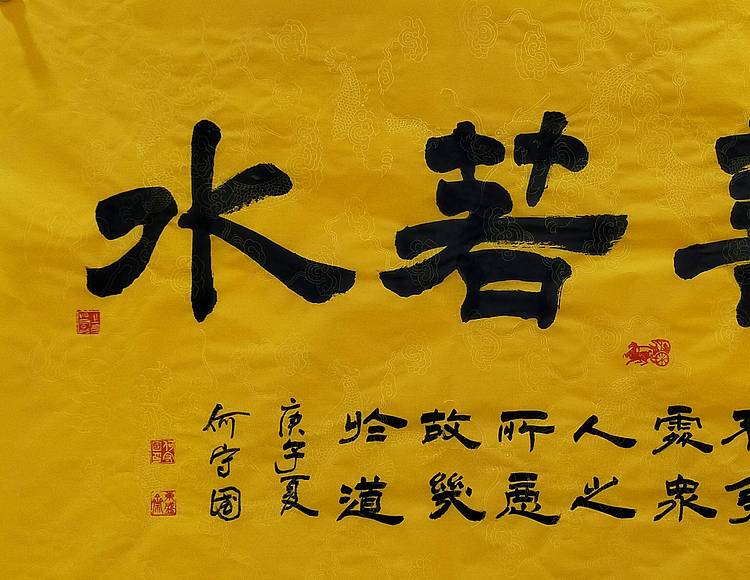 若水
處衆
人之
所惡
故幾
於道
庚子夏
何守國